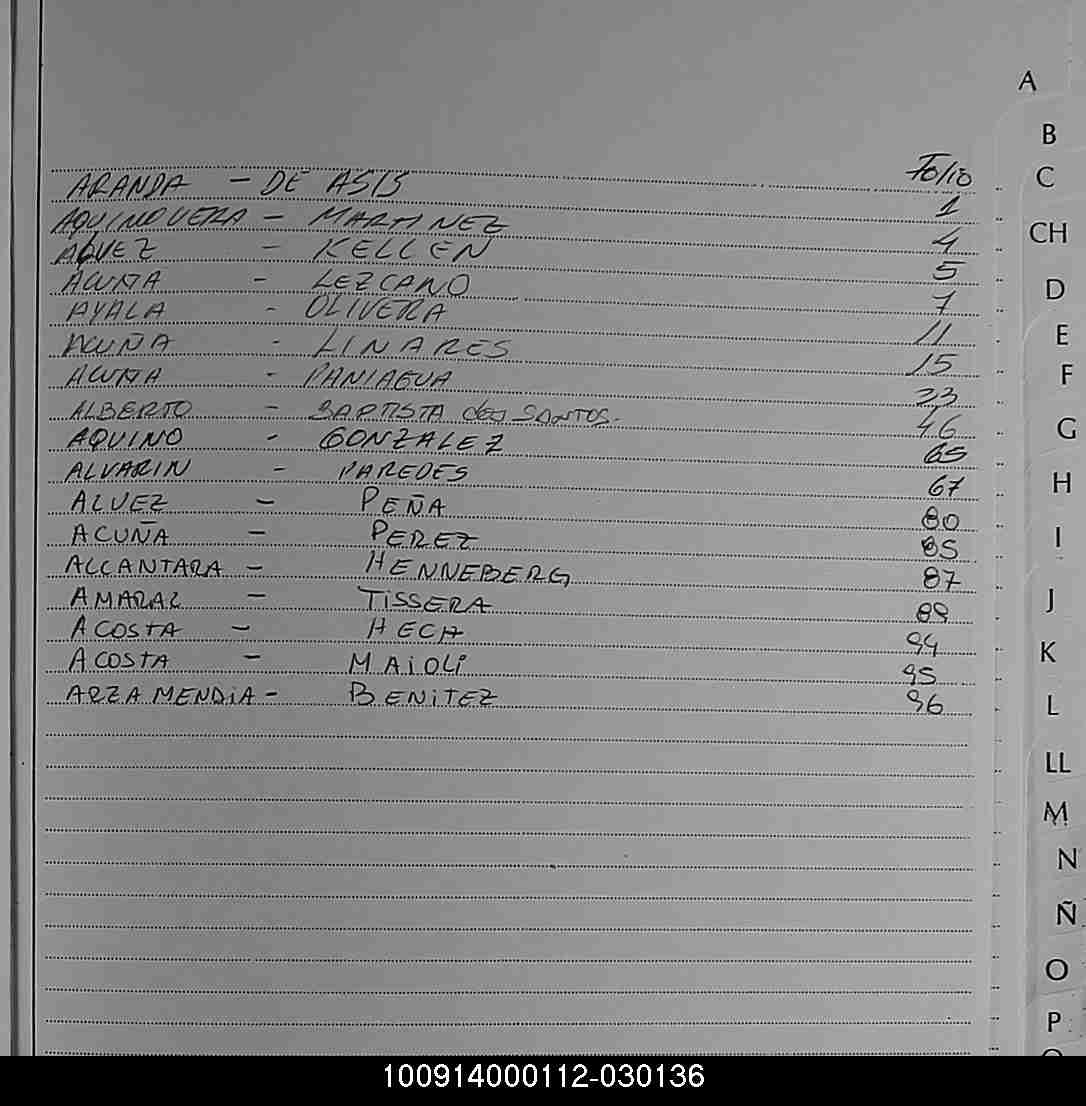 Folio
ARANDA - DE ASIS 1
AQUINO VERA - MARTINEZ 4
ALVEZ - KELLEN 5
ACUÑA - LEZCANO 7
AYALA - OLIVEIRA 11
ACUÑA - LINARES 15
ACUÑA - PANIAGUA 23
ALBERTO - BAPTISTA dos SANTOS. 46
AQUINO - GONZALEZ 65
ALVARIN - PAREDES 67
ALVEZ - PEÑA 80
ACUÑA - PEREZ 85
ALCANTARA - HENNEBERG 87
AMARAL - TISSERA 89
ACOSTA - HECH 94
ACOSTA - MAIOLI 95
ARZAMENDIA - BENITEZ 96
A
B
C
CH
D
E
F
G
H
I
J
K
L
LL
M
N
Ñ
O
P
100914000112-030136